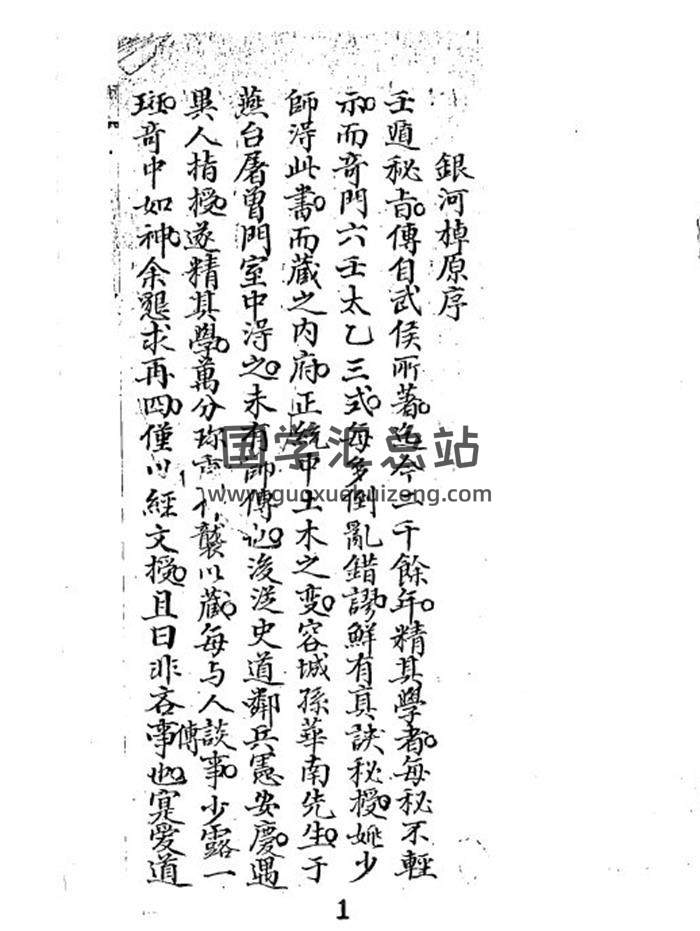 銀河棹原序
壬遁秘旨。傳自武侯所著。迄今二千餘年。精其學者。每秘不輕
示。而奇門六壬太乙三式。每多倒亂錯謬。鮮有真訣秘授。姚少
師淂此書。而藏之内府。正統中土木之变。容城孫華南先生。于
燕台屠曾門室中淂之。未有師傳也。后從史道鄰兵憲安慶。遇
異人指授。遂精其學。萬分珍襲以藏。每与人談事。少露一
斑。奇中如神。余懇求再四。僅以經文授。且曰非吝傳事也。寔愛道
国学汇总站
www.guoxuehuizong.com
1